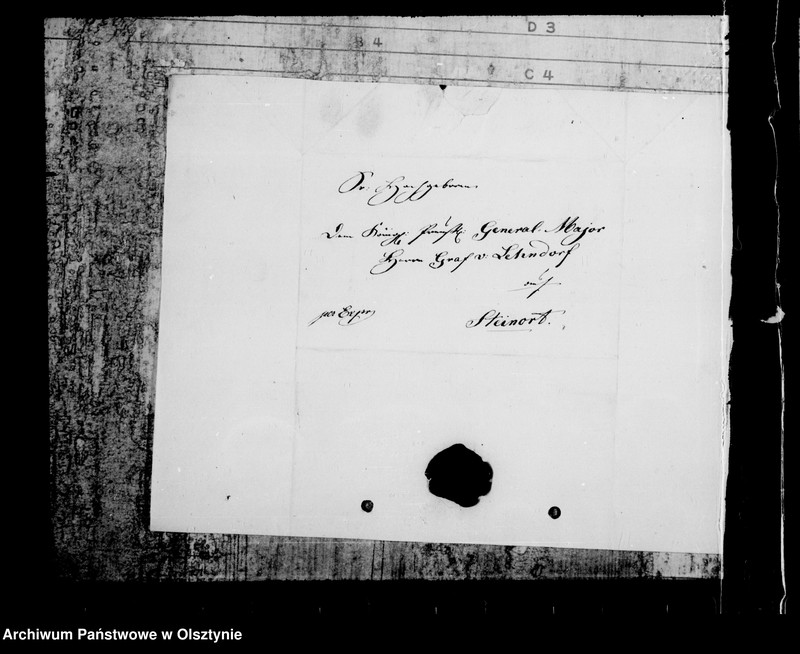 D3
B4
C4
Sr. Hochgeboren
Dem Königl. Preuß. General-Major
Herrn Graf v. Lehndorf
auf
per Expr.
Steinort.
Archiwum Państwowe w Olsztynie